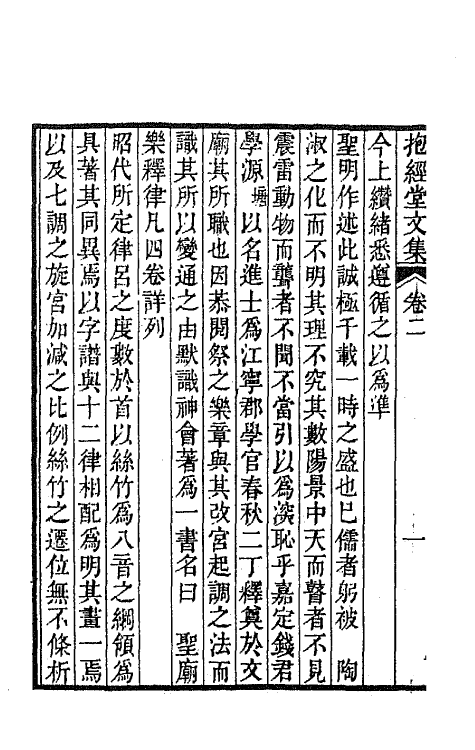 抱經堂文集 卷二 一
今上纘緒悉遵循之以爲準
聖明作述此誠極千載一時之盛也已儒者躬被 陶
淑之化而不明其理不究其數陽景中天而瞽者不見
震雷動物而聾者不聞不當引以爲深恥乎嘉定錢君
學源塘以名進士爲江寧郡學官春秋二丁釋奠於文
廟其所職也因恭閱祭之樂章與其改宮起調之法而
識其所以變通之由默識神會著爲一書名曰 聖廟
樂釋律凡四卷詳列
昭代所定律呂之度數於首以絲竹爲八音之綱領爲
具著其同異焉以字譜與十二律相配爲明其畫一焉
以及七調之旋宮加減之比例絲竹之遷位無不條析